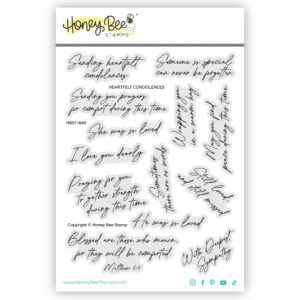 Honey Bee
STAMPS
Sending heartfelt
condolences
Someone so special
can never be forgotten
HEARTFELT CONDOLENCES
Sending you prayers
for comfort during this time
HBST-640
She was so loved
I love you dearly
Wrapping you
in a warm hug
May you find
peace during this time
Sometimes
there are no words
Still loved
and still missed
Praying for you
to gather strength
during this time
Copyright © Honey Bee Stamps
He was so loved
Blessed are those who mourn,
for they will be comforted.
Matthew 5:4
With Deepest
Sympathy
www.HoneyBeeStamps.com